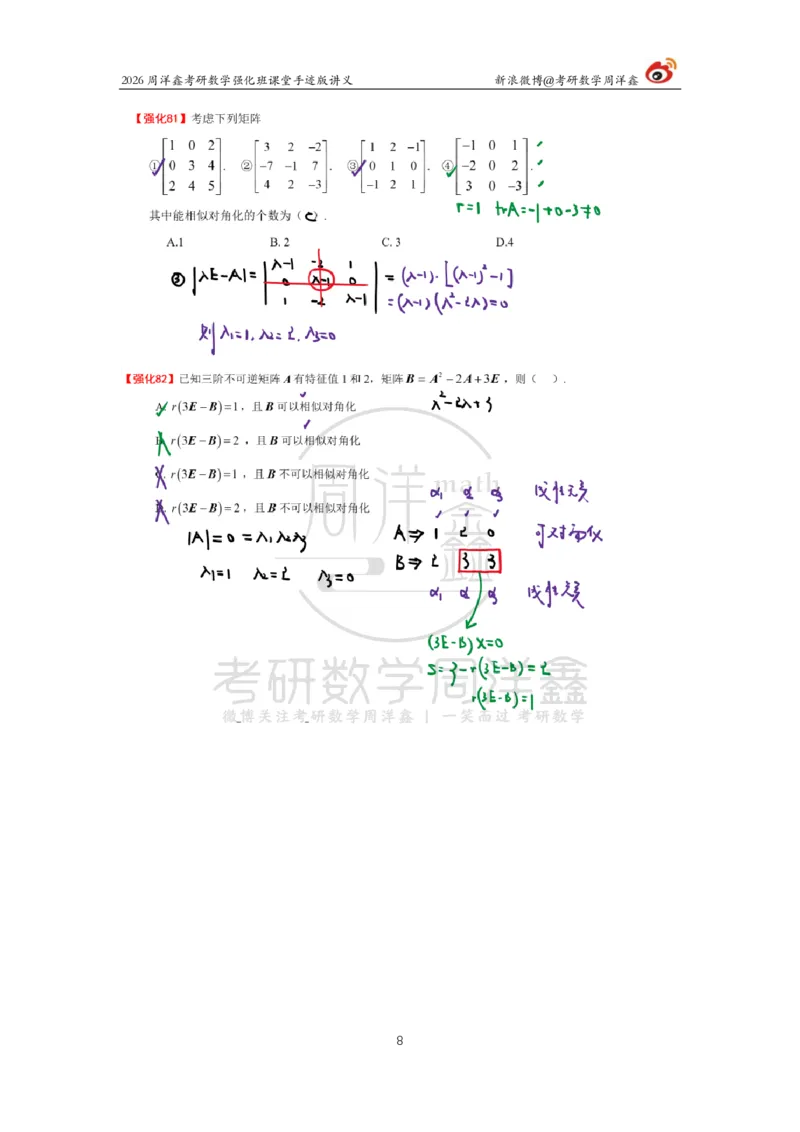 2026 周洋鑫考研数学强化班课堂手迹版讲义 新浪微博@考研数学周洋鑫
【强化81】考虑下列矩阵
① [1 0 2; 0 3 4; 2 4 5]. ② [3 2 −2; −7 −1 7; 4 2 −3]. ③ [1 2 −1; 0 1 0; −1 2 1]. ④ [−1 0 1; −2 0 2; 3 0 −3].
r=1 trA=-1+0-3≠0
其中能相似对角化的个数为（ C ）.
A.1 B. 2 C. 3 D.4
③ |λE-A|= |λ-1 -2 1; 0 λ-1 0; 1 -2 λ-1| = (λ-1)·[(λ-1)²-1]
=(λ-1)(λ²-2λ)=0
则 λ₁=1, λ₂=2, λ₃=0
【强化82】已知三阶不可逆矩阵 A 有特征值 1 和 2，矩阵 B = A² −2A+3E ，则（ ）.
A. r(3E−B)=1，且 B 可以相似对角化
λ²-2λ+3
B. r(3E−B)=2 ，且 B 可以相似对角化
C. r(3E−B)=1 ，且 B 不可以相似对角化
D. r(3E−B)=2，且 B 不可以相似对角化
α₁ α₂ α₃ 线性无关
|A|=0=λ₁λ₂λ₃
A⇒ 1 2 0 可对角化
B⇒ 2 3 3
λ₁=1 λ₂=2 λ₃=0
α₁ α₂ α₃ 线性无关
(3E-B)X=0
S=3-r(3E-B)=2
r(3E-B)=1
周洋鑫
math
考研数学周洋鑫
微博关注考研数学周洋鑫 | 一笑而过 考研数学
8